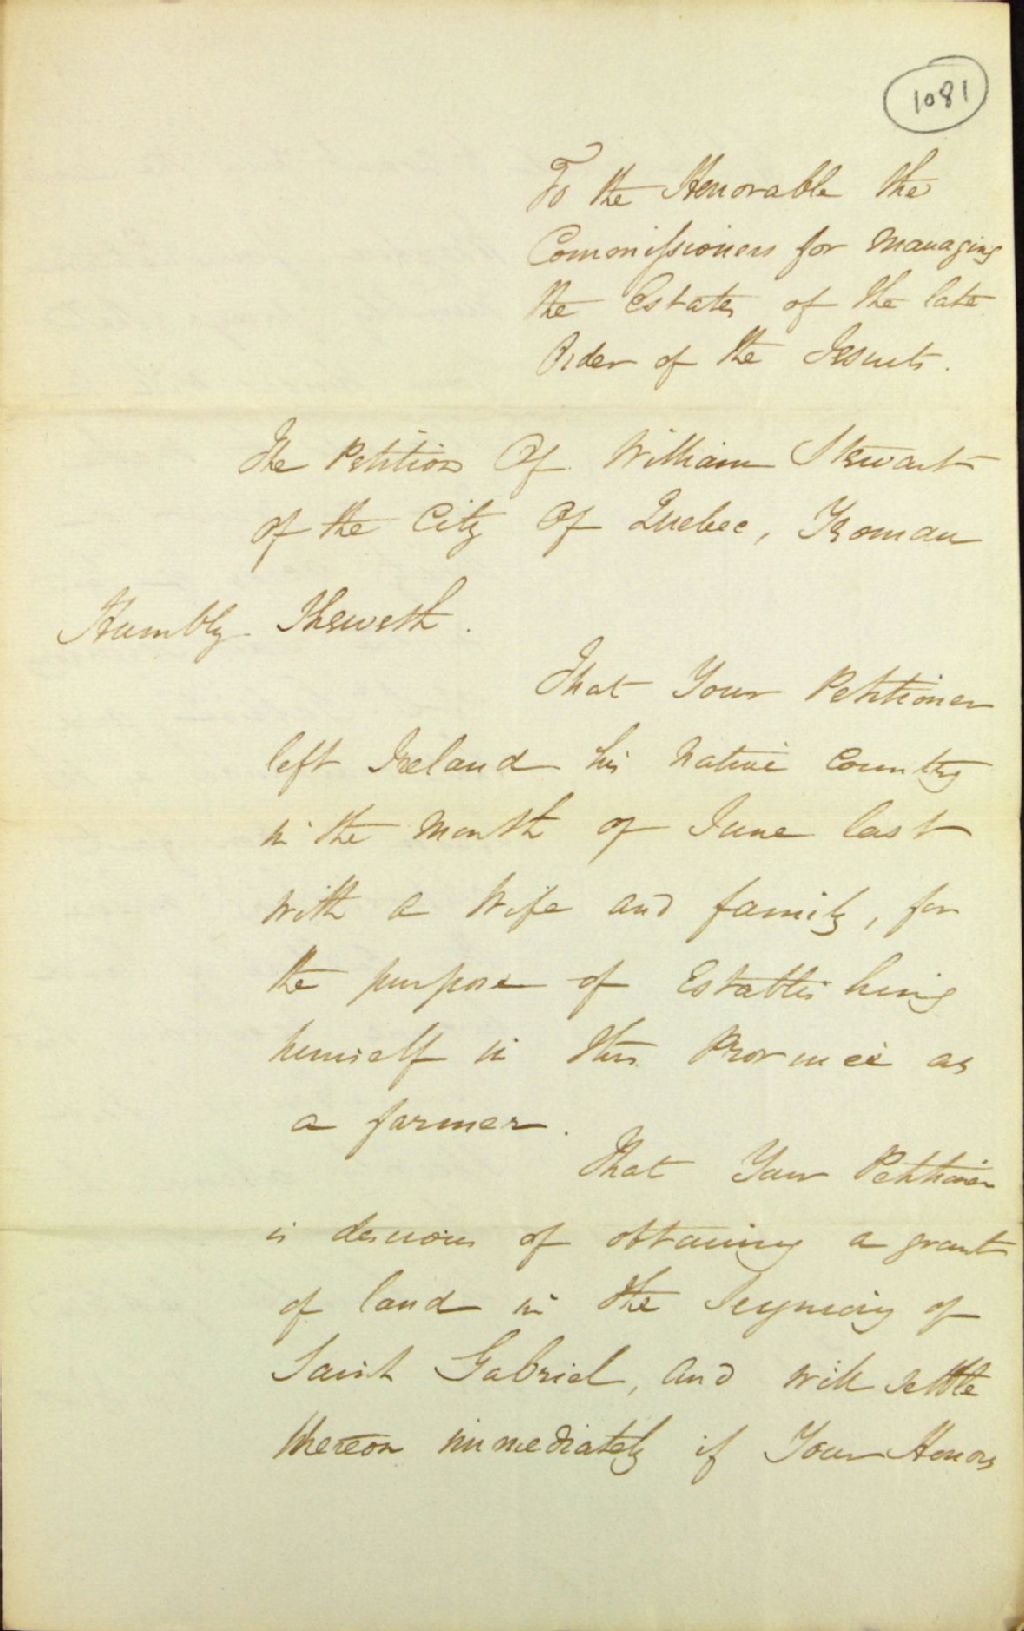 1081
To the Honorable the
Commissioners for managing
the Estates of the late
Order of the Jesuits.
The Petition Of William Stewart
of the City Of Quebec, Yeoman
Humbly Sheweth.
That Your Petitioner
left Ireland his native Country
in the Month of June last
with a Wife and family, for
the purpose of Establishing
himself in this Province as
a farmer.
That Your Petitioner
is desirous of obtaining a grant
of land in the Seigniory of
Saint Gabriel, and will settle
thereon immediately if Your Honors